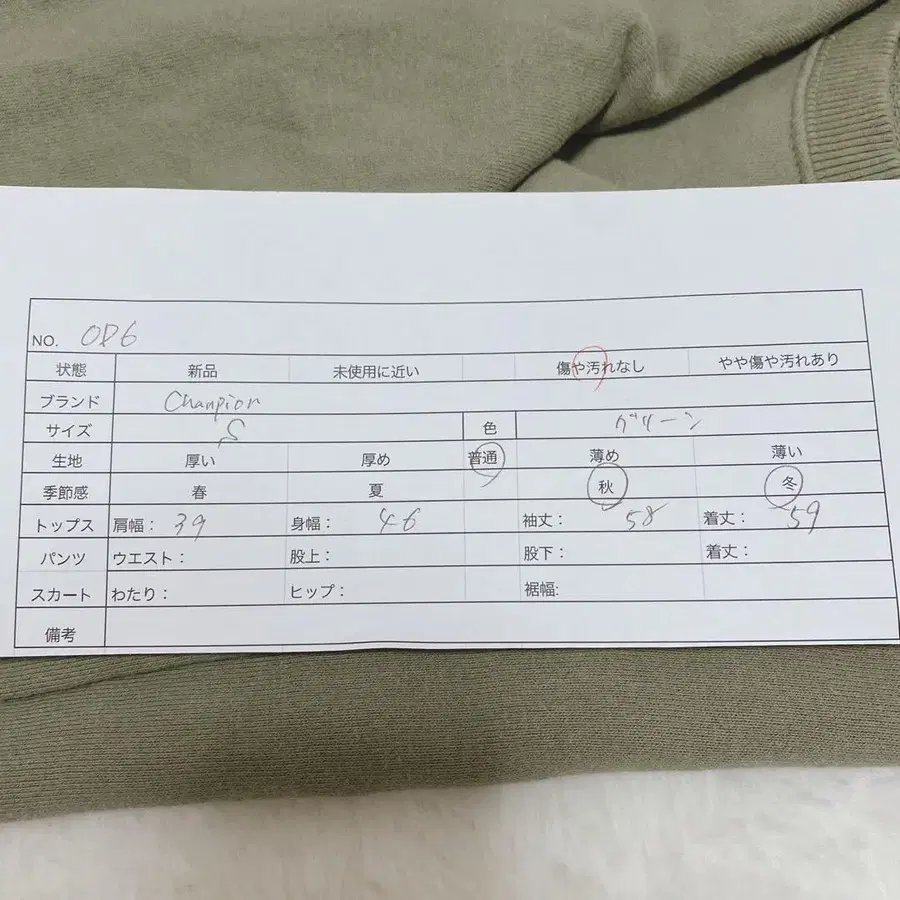 NO. OP6
状態 新品 未使用に近い 傷や汚れなし やや傷や汚れあり
ブランド Champion
サイズ S 色 グリーン
生地 厚い 厚め 普通 薄め 薄い
季節感 春 夏 秋 冬
トップス 肩幅: 39 身幅: 46 袖丈: 58 着丈: 59
パンツ ウエスト: 股上: 股下: 着丈:
スカート わたり: ヒップ: 裾幅:
備考